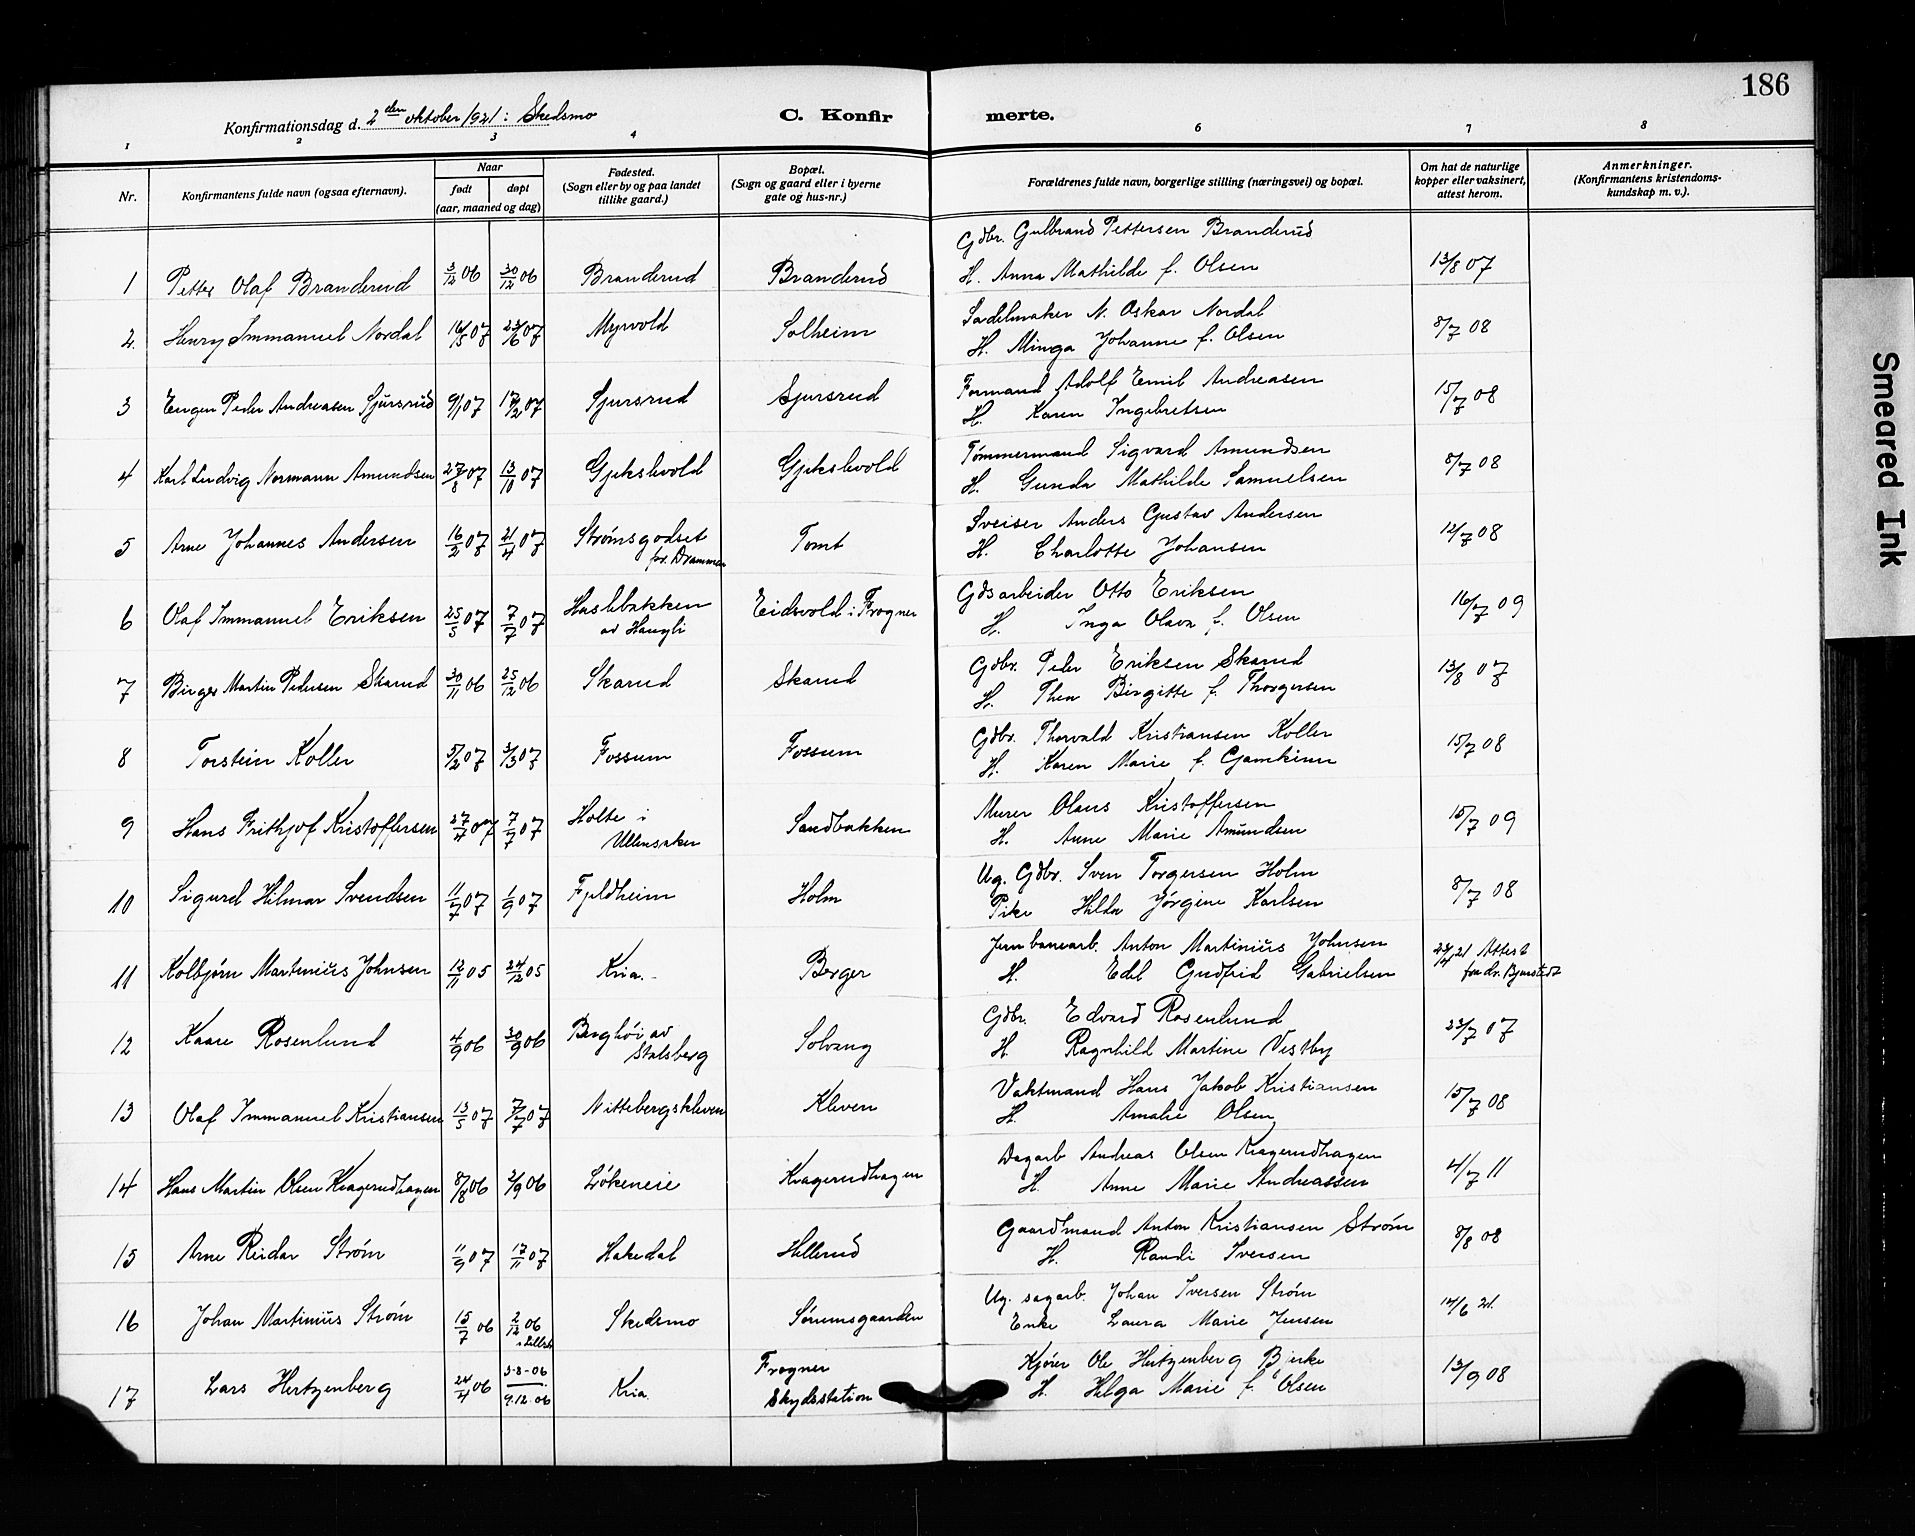 186
Konfirmationsdag d. 2den oktober 1921: Skedsmo
C. Konfirmerte.
1 2 3 4 6 7 8
Nr.
Konfirmantens fulde navn (ogsaa efternavn).
Naar
født døpt
(aar, maaned og dag)
Fødested.
(Sogn eller by og paa landet
tillike gaard.)
Bopæl.
(Sogn og gaard eller i byerne
gate og hus-nr.)
Forældrenes fulde navn, borgerlige stilling (næringsvei) og bopæl.
Om hat de naturlige
kopper eller vaksinert,
attest herom.
Anmerkninger.
(Konfirmantens kristendoms-
kundskap m. v.).
Gdbr. Gulbrand Pettersen Branderud
1 Petter Olaf Branderud 3/12 06 30/12 06 Branderud Branderud H. Anna Mathilde f. Olsen 13/8 07
Sadelmaker N. Oskar Nordal
2. Henry Immanuel Nordal 14/5 07 23/6 07 Myrvold Solheim H. Minga Johanne f. Olsen 8/7 08
Formand Adolf Emil Andreasen
3 Eugen Peder Andreasen Sjursrud 9/1 07 17/2 07 Sjursrud Sjursrud H. Karen Ingebretsen 15/7 08
Tømmermand Sigvard Amundsen
4 Karl Ludvig Normann Amundsen 27/8 07 13/10 07 Gjekslevold Gjekslevold H. Gunda Mathilde Samuelsen 8/7 08
Sveiser Anders Gustav Andersen
5 Arne Johannes Andersen 16/2 07 21/4 07 Strømsgodset Tomt H. Charlotte Johansen 12/7 08
pr. Drammen
Gdsarbeider Otto Eriksen
6 Olaf Immanuel Eriksen 25/5 07 7/7 07 Haslebakken Eidsvold i Frogner H. Inga Olava f. Olsen 16/7 09
av Haugli
Gdbr. Peder Eriksen Skarud
7 Birger Martin Pedersen Skarud 30/11 06 25/12 06 Skarud Skarud H. Thea Birgitte f. Thorgersen 13/8 07
Gdbr. Thorvald Kristiansen Koller
8 Torstein Koller 5/2 07 3/3 07 Fossum Fossum H. Karen Marie f. Gamkinn 15/7 08
Murer Olaus Kristoffersen
9 Hans Frithjof Kristoffersen 27/4 07 7/7 07 Holte i Sandbakken H. Anne Marie Amundsen 15/7 09
Ullensaker
Ug. Gdbr. Sven Torgersen Holm
10 Sigurd Hilmar Svendsen 11/7 07 1/9 07 Fjeldheim Holm Pike Hilda Jørgine Karlsen 8/7 08
Jernbanearb. Anton Martinius Johnsen
11 Kolbjørn Martinius Johnsen 12/11 05 24/12 05 Kria. Berger H. Edel Gudfrid Gabrielsen 21 Attest
fra dr. Bjerstedt
Gdbr. Edvard Rosenlund
12 Kaare Rosenlund 4/9 06 30/9 06 Berghøi av Solvang H. Ragnhild Martine Vestby 23/7 07
Stalsberg
Vaktmand Hans Jakob Kristiansen
13 Olaf Immanuel Kristiansen 13/5 07 7/7 07 Nittebergskleven Kleven H. Amalie Olsen 15/7 08
Dagarb Andreas Olsen Kragerudhagen
14 Hans Martin Olsen Kragerudhagen 8/8 06 2/9 06 Løkeneie Kragerudhagen H. Anne Marie Andreassen 4/7 11
Gaardmand Anton Kristiansen Strøm
15 Arne Reidar Strøm 11/9 07 17/11 07 Hakedal Hillerud H. Randi Iversen 8/8 08
Ug. sagarb. Johan Iversen Strøm
16 Johan Martinius Strøm 15/7 06 2/12 06 Skedsmo Sørumsgaarden Enke Laura Marie Jensen 14/6 21.
Kjører Ole Hertzenberg Bjerke
17 Lars Hertzenberg 24/4 06 3-8-06 Kria. Frogner H. Helga Marie f. Olsen 13/9 08
9.12.06 Skydsstation
Smeared Ink